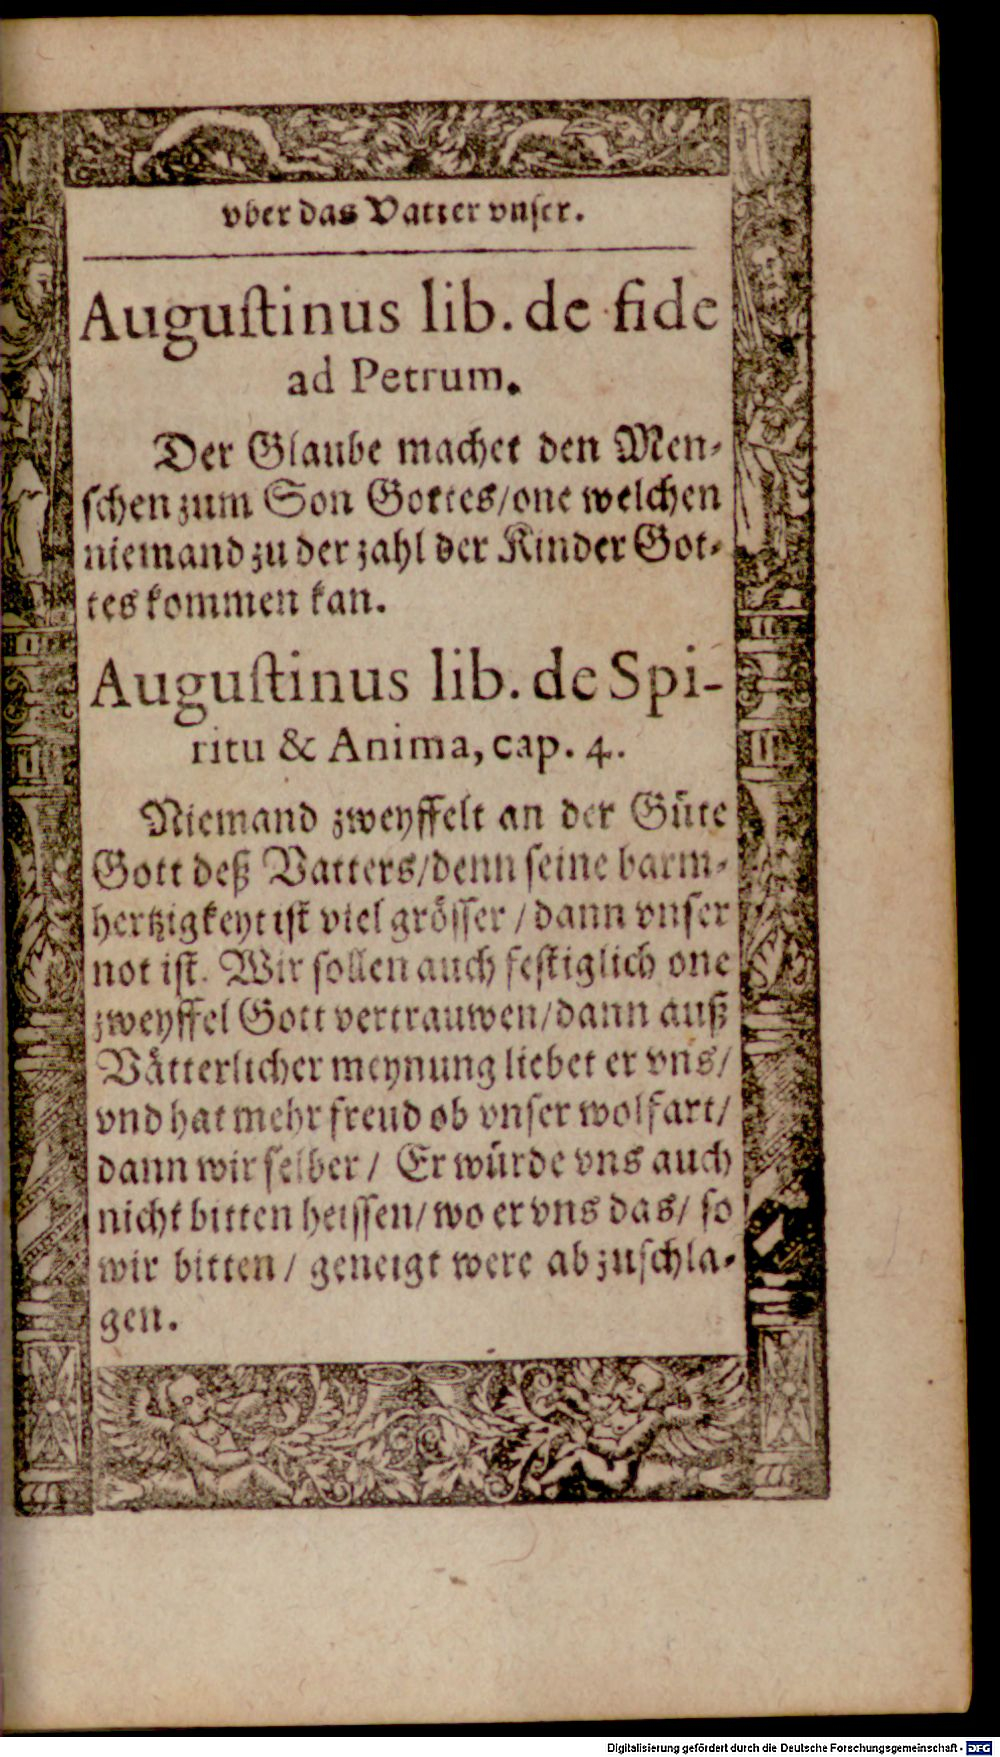 vber das Vatter vnser.
Augustinus lib. de fide
ad Petrum.
Der Glaube machet den Men-
schen zum Son Gottes/one welchen
niemand zu der zahl der Kinder Got-
tes kommen kan.
Augustinus lib. de Spi-
ritu & Anima, cap. 4.
Niemand zweyffelt an der Güte
Gott deß Vatters/denn seine barm-
hertzigkeyt ist viel grösser / dann vnser
not ist. Wir sollen auch festiglich one
zweyffel Gott vertrauwen/dann auß
Vätterlicher meynung liebet er vns/
vnd hat mehr freud ob vnser wolfart/
dann wir selber / Er würde vns auch
nicht bitten heissen/ wo er vns das/ so
wir bitten / geneigt were abzuschla-
gen.
Digitalisierung gefördert durch die Deutsche Forschungsgemeinschaft - DFG